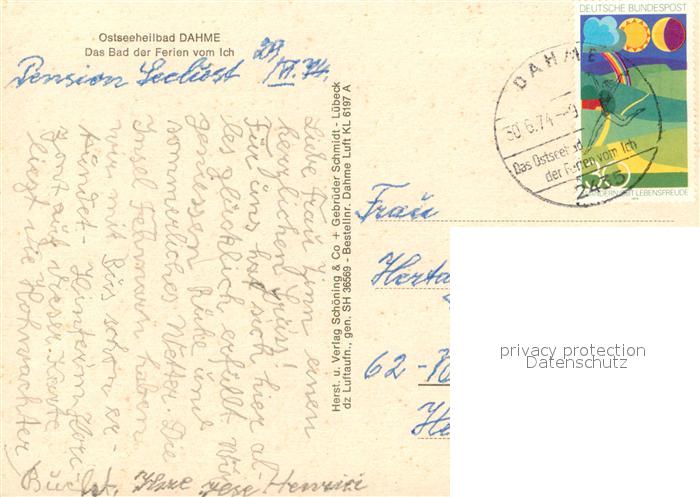 Ostseeheilbad DAHME
Das Bad der Ferien vom Ich
Pension Seelust 29/VI. 74.
Liebe Frau Zinn einen
herzlichen Gruss!
Für uns hat sich hier al-
les glücklich erfüllt Wir
geniessen Ruhe und
sommerliches Wetter Die
Insel Fehmarn haben
wir mit Bus schon er-
kundet. Hinterm Hori-
zont auf dieser Karte
liegt die Hohwachter
Bucht. Ihre Henrici
Herst. u. Verlag Schöning & Co + Gebrüder Schmidt - Lübeck
dz Luftaufn., gen. SH 36569 - Bestellnr. Dahme Luft KL 6197 A
DEUTSCHE BUNDESPOST
WANDERN IST LEBENSFREUDE
DAHME
30.6.74
Das Ostseebad
der Ferien vom Ich
2435
Frau
Herta
62 -
privacy protection
Datenschutz